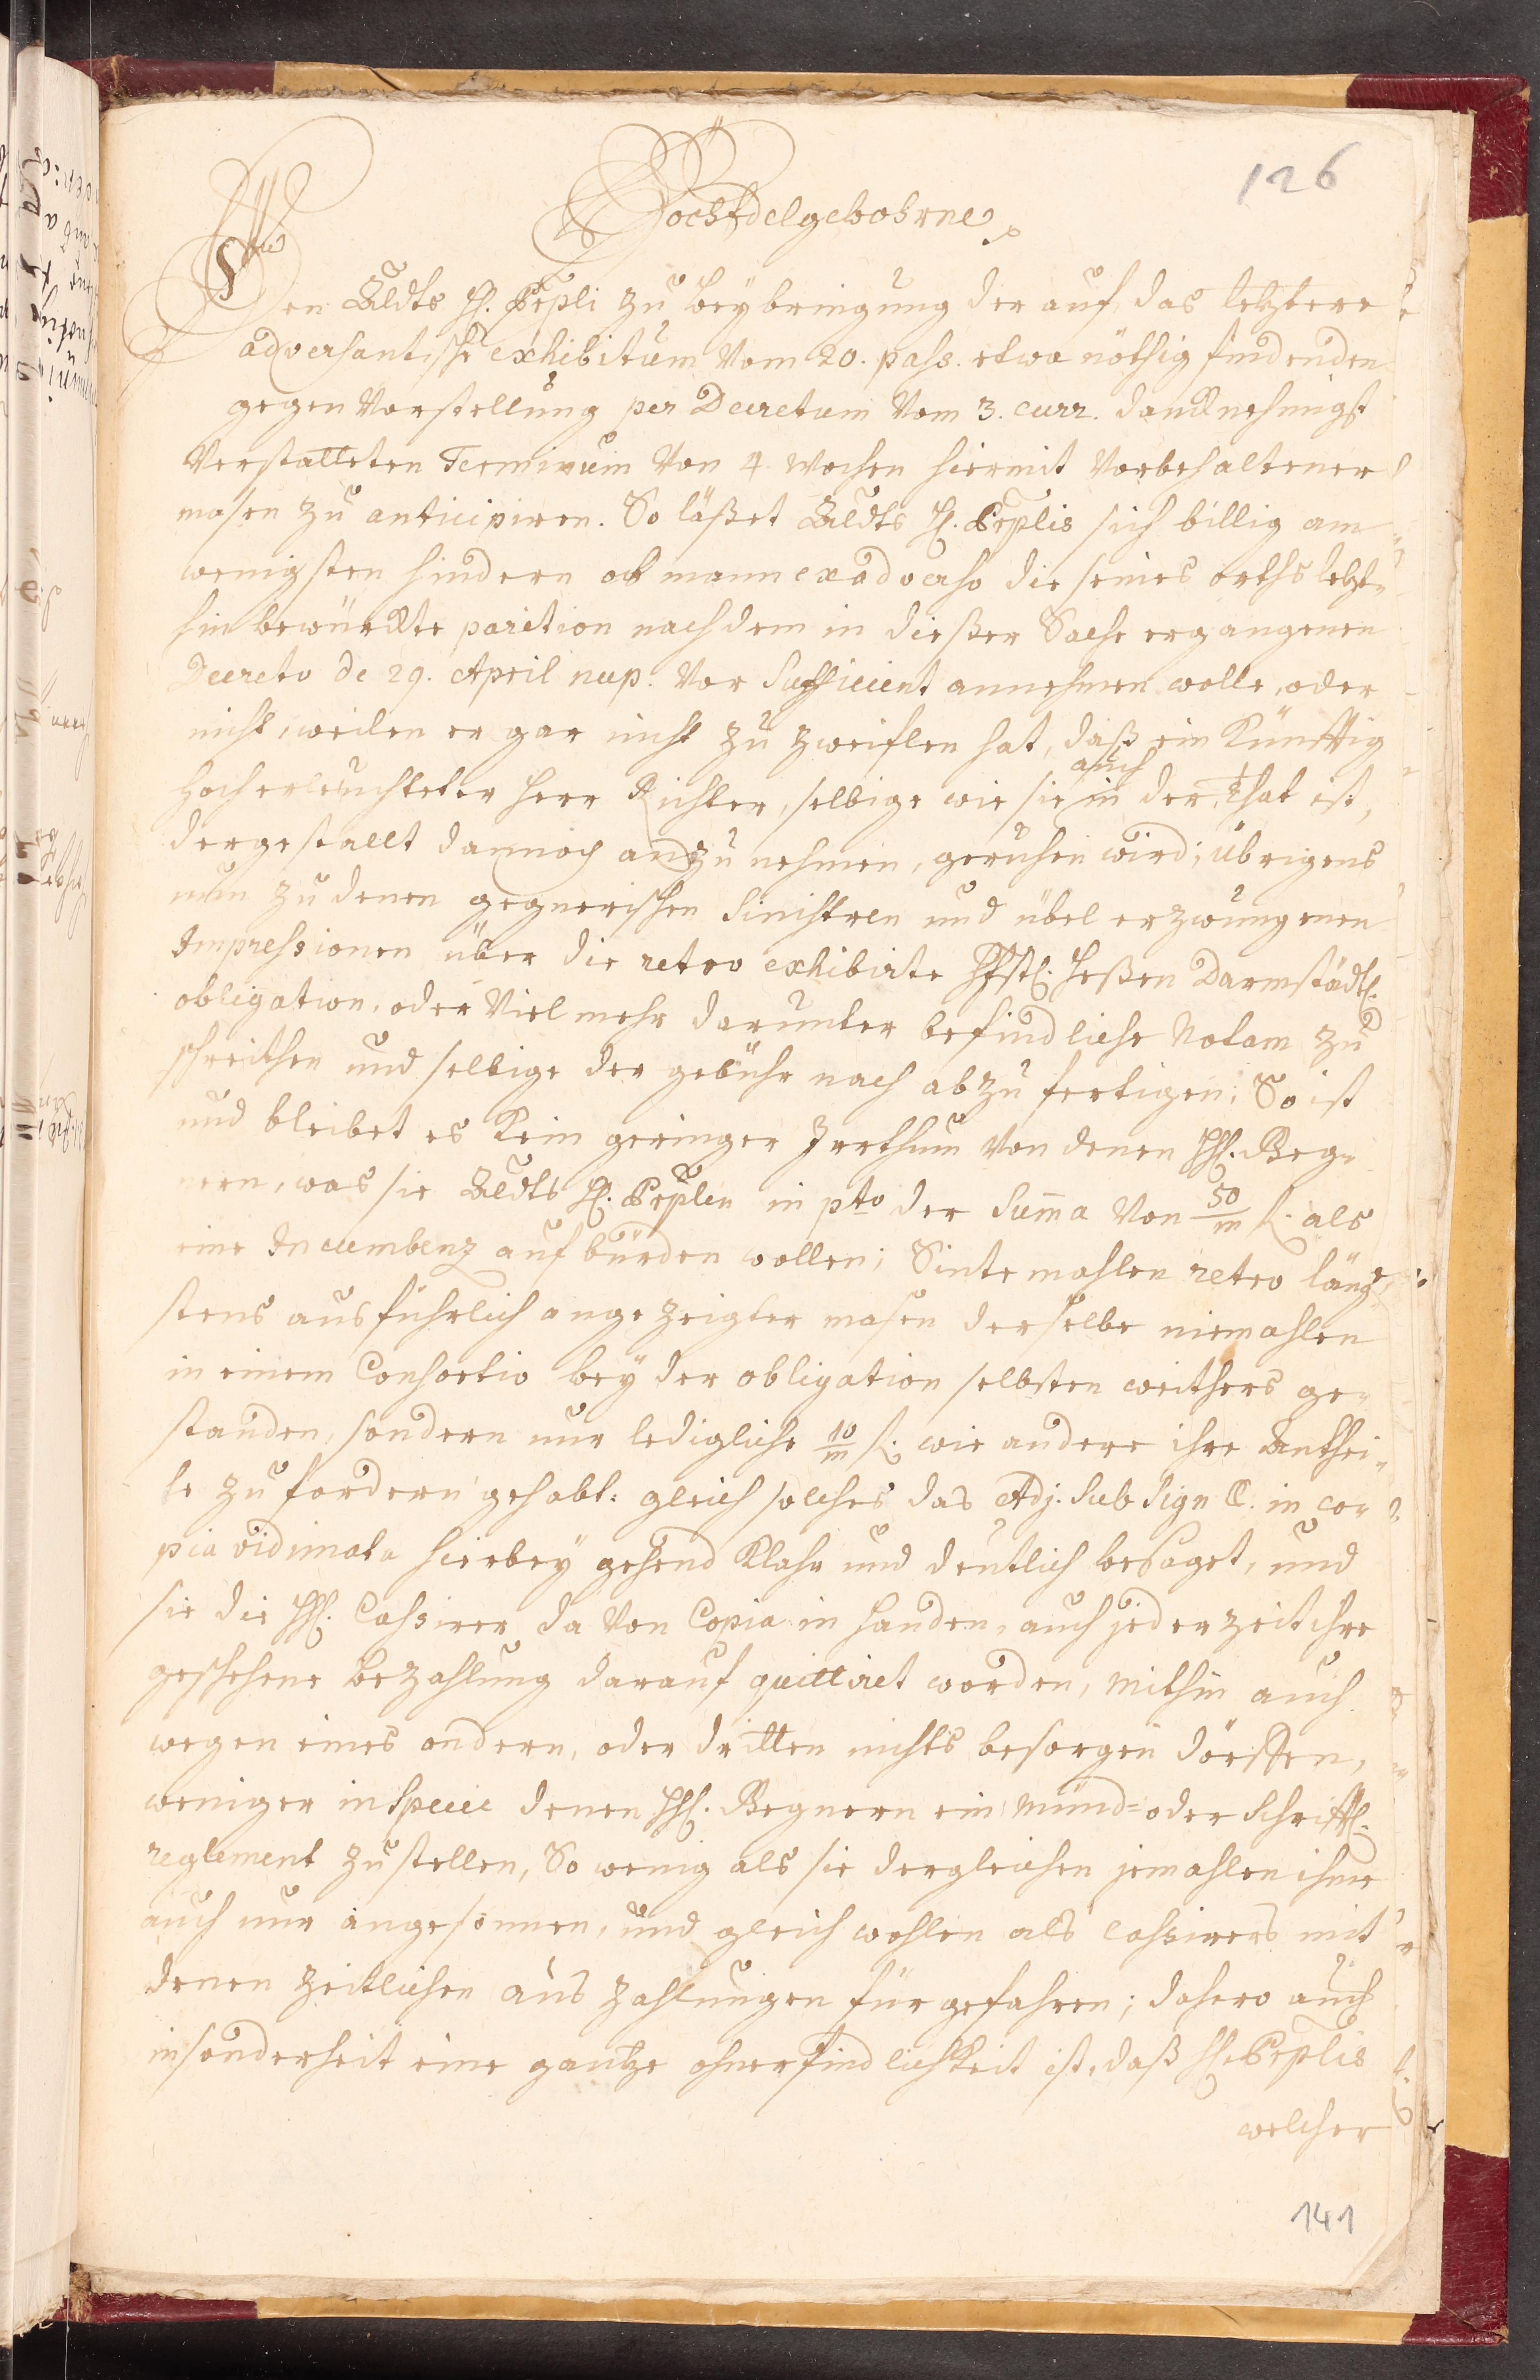 126
HochEdelgebohrne p
Den Bldts H. Peplis zu beybringung der auf das letztere
adversantische exhibitum vom 20. pass. etwa nöthig findenden
gegen Vorstellung per Decretum vom 3. curr. dancknehmigst
verstatteten Terminum von 4 wochen hiermit vorbehaltener
masen zu anticipiren. So läßet Bldts H. Peplis sich billig am
wenigsten hindern ob mann ex adverso die seines orths letzt-
hin bewürckte parition nach dem in dießer Sache ergangenen
Decreto de 29. April nup. vor Sufficient annehmen wolle, oder
nicht, weilen er gar nicht zu zweiflen hat, daß ein Künfftig
hocherleuchteter Herr Richter, selbige wie sie auch in der that ist,
dergestallt dannoch anzunehmen, geruhen wird; übrigens
nun zu denen gegnerischen Sinistren und übel erzwungenen
Impressionen über die retro exhibirte Hfstl. Heßen Darmstädtl.
obligation, oder vielmehr darunter befindliche Notam zu
schreithen und selbige der gebühr nach abzufertigen; So ist
und bleibet es kein geringer Irrthum von denen HH. Geg-
nern, was sie Bldts H. Peplis in pto der Summa von 50/m f. als
eine Incumbenz aufbürden wollen; Sintemahlen retro läng-
stens ausführlich angezeigter masen derselbe niemahlen
in einem Consortio bey der obligation selbsten weithers ge-
standen, sondern nur lediglich 10/m f. wie andere ihre Anthei-
le zu fordern gehabt: gleich solches das Adj. Sub Sign C. in co-
pia vidimata hierbey gehend klahr und deutlich besaget, und
sie die HH. Cassirer davon Copia in handen, auch jederzeit ihre
geschehene bezahlung darauf quittiret worden, mithin auch
wegen eines andern, oder dritten nichts besorgen dörffen,
weniger in Specie denen HH. Gegnern ein mund- oder Schrifftl.
reglement zustellen, So wenig als sie dergleichen jemahlen ihme
auch nur angesonnen, und gleichwohlen als Cassirers mit
denen zeitlichen auszahlungen fürgefahren; dahero auch
insonderheit eine gantze ohnerfindlichkeit ist, daß H. Peplis
welcher
141